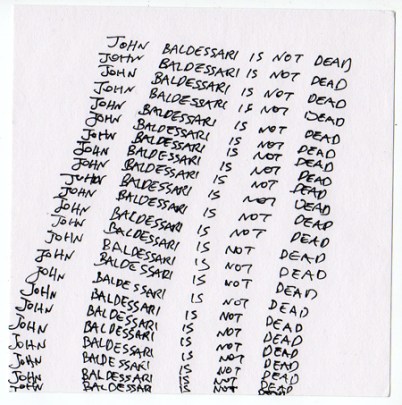 JOHN BALDESSARI IS NOT DEAD
JOHN BALDESSARI IS NOT DEAD
JOHN BALDESSARI IS NOT DEAD
JOHN BALDESSARI IS NOT DEAD
JOHN BALDESSARI IS NOT DEAD
JOHN BALDESSARI IS NOT DEAD
JOHN BALDESSARI IS NOT DEAD
JOHN BALDESSARI IS NOT DEAD
JOHN BALDESSARI IS NOT DEAD
JOHN BALDESSARI IS NOT DEAD
JOHN BALDESSARI IS NOT DEAD
JOHN BALDESSARI IS NOT DEAD
JOHN BALDESSARI IS NOT DEAD
JOHN BALDESSARI IS NOT DEAD
JOHN BALDESSARI IS NOT DEAD
JOHN BALDESSARI IS NOT DEAD
JOHN BALDESSARI IS NOT DEAD
JOHN BALDESSARI IS NOT DEAD
JOHN BALDESSARI IS NOT DEAD
JOHN BALDESSARI IS NOT DEAD
JOHN BALDESSARI IS NOT DEAD
JOHN BALDESSARI IS NOT DEAD